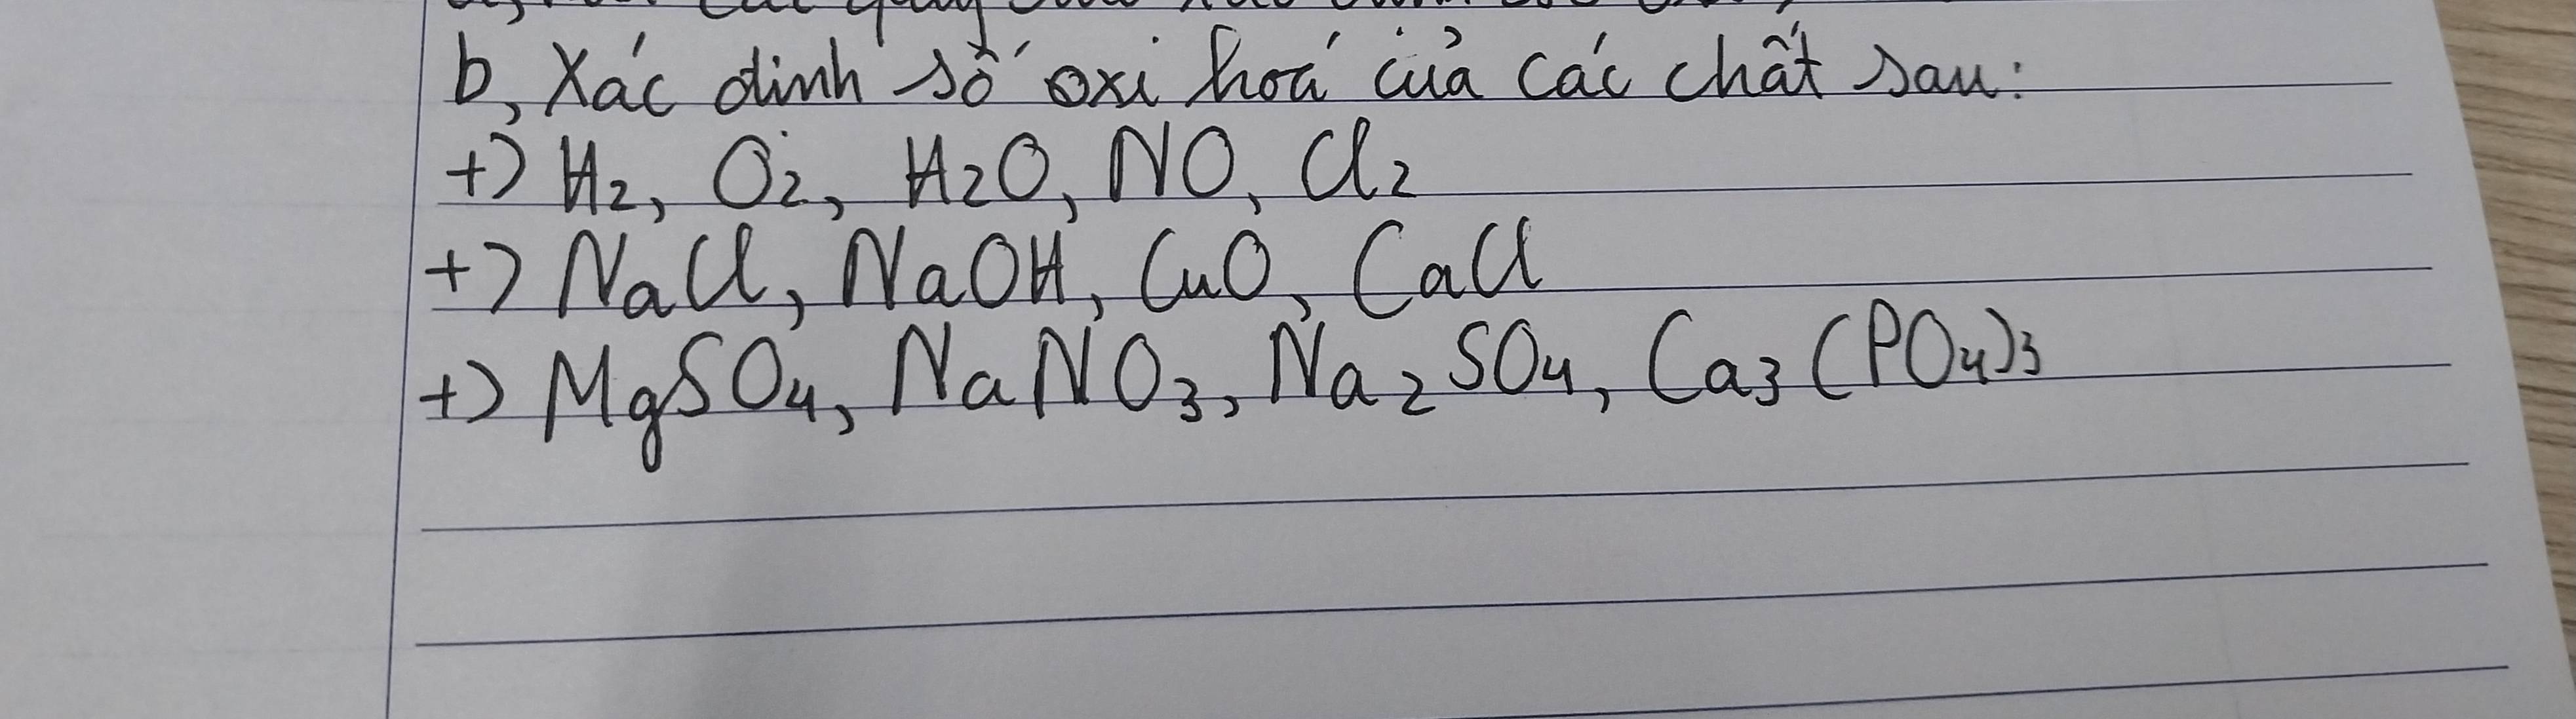 b, Xác dinh số oxi hoá của các chất sau:
+) H₂, O₂, H₂O, NO, Cl₂
+) NaCl, NaOH, CuO, CaCl
+) MgSO₄, NaNO₃, Na₂SO₄, Ca₃(PO₄)₃